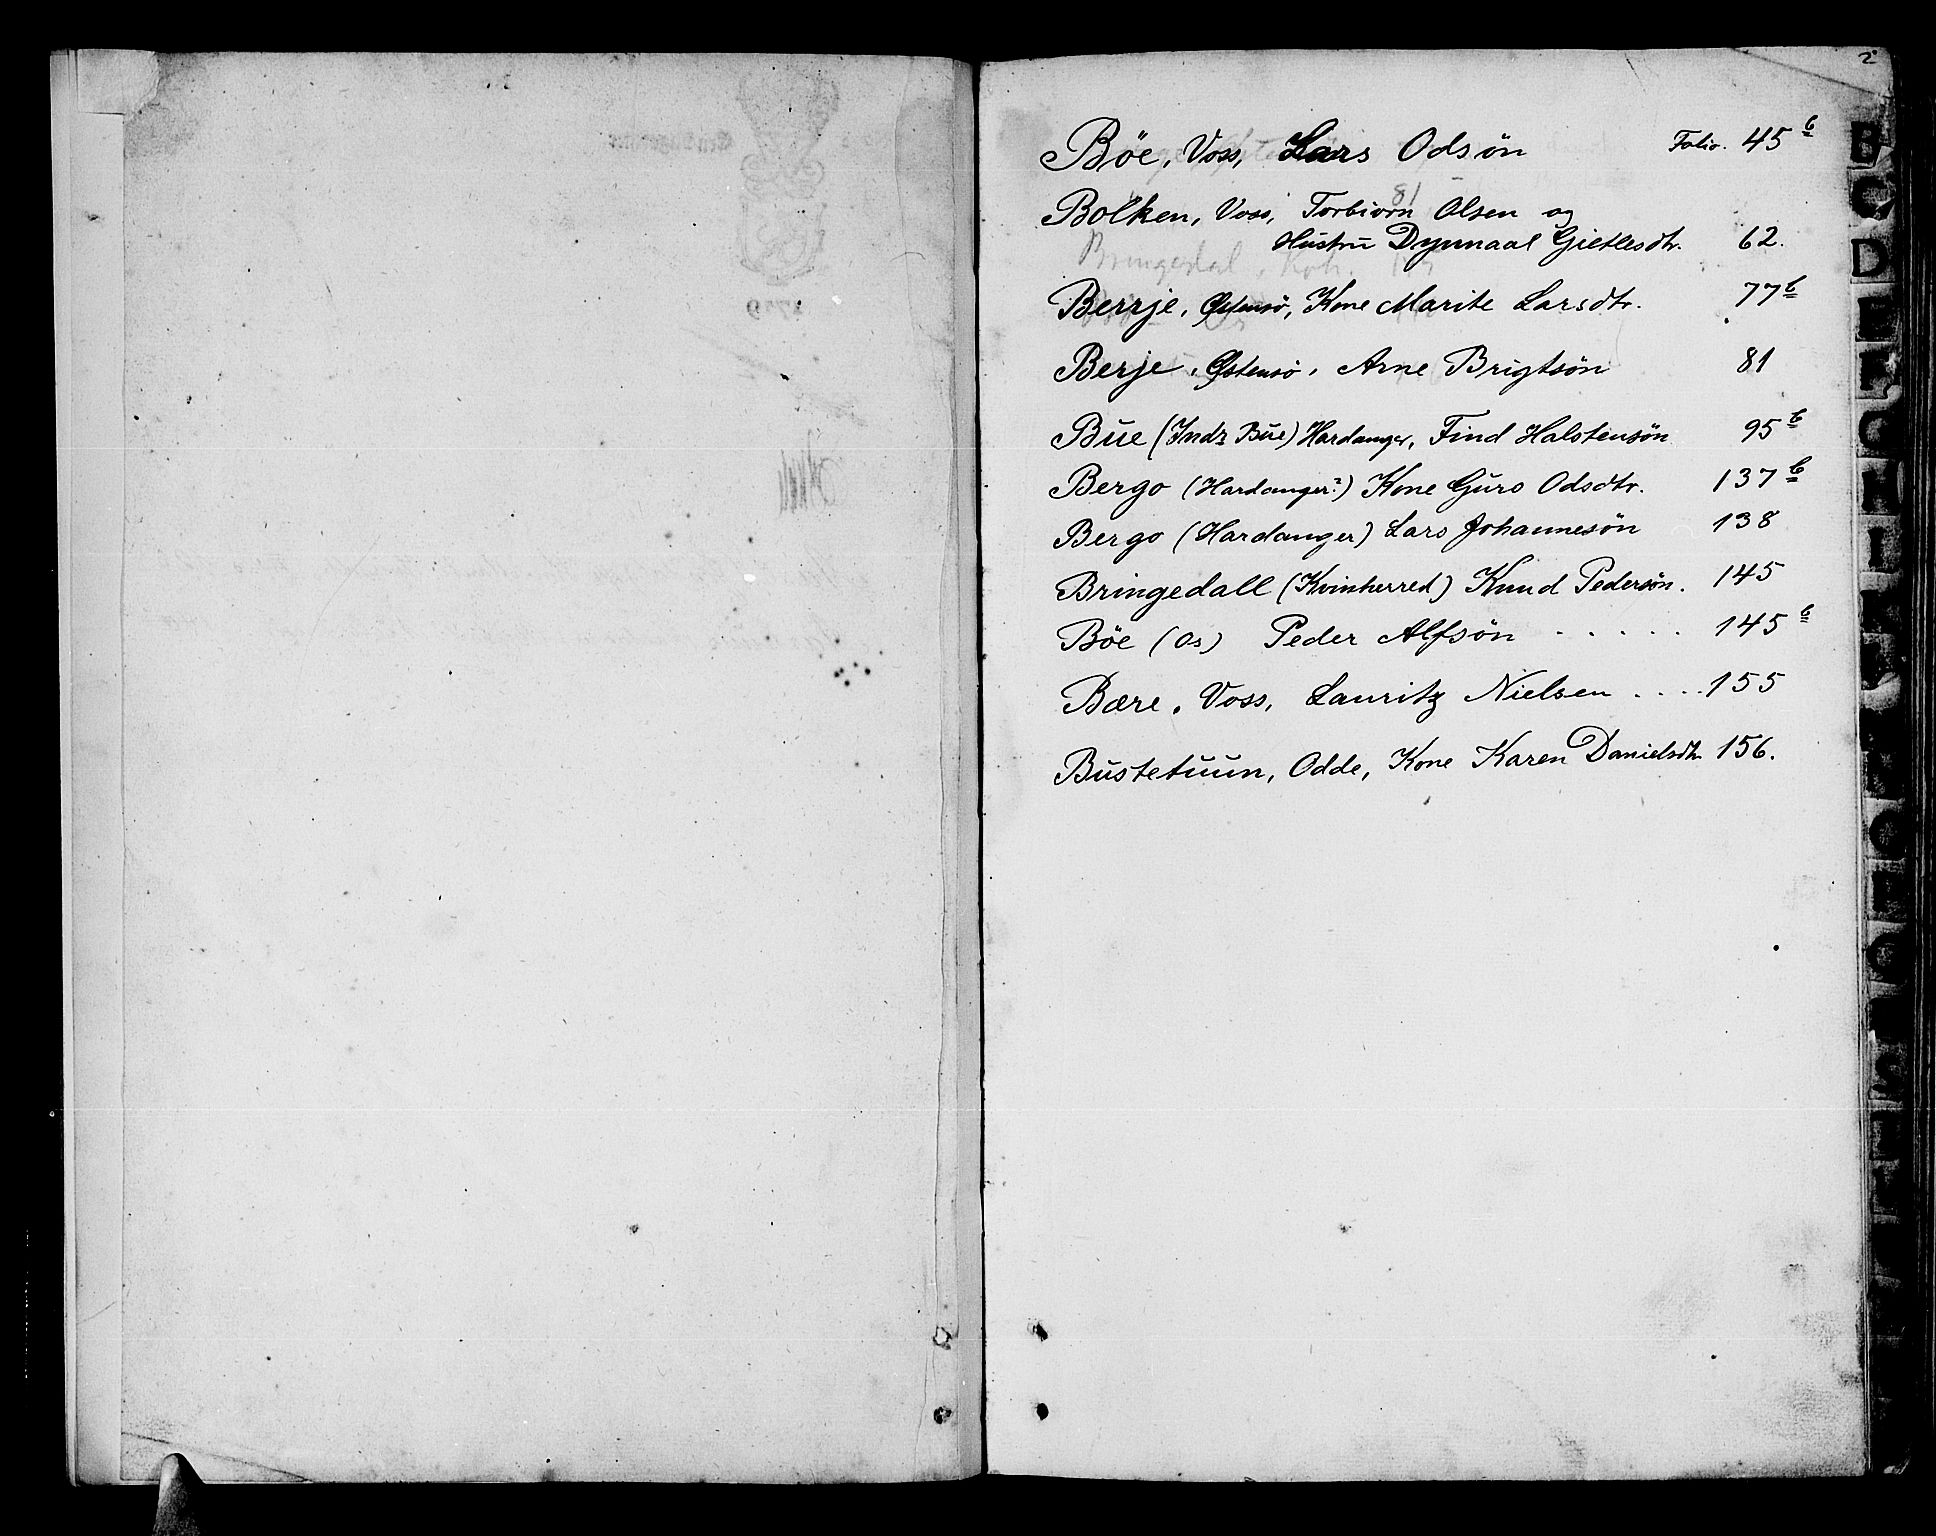 2
Böe, Voss, Lars Odsön Folio. 45 b
Bolken, Voss, Torbiørn Olsen og
Hustru Dynnaal Gietlesdtr. 62.
Berrje, Østensö, Kone Marite Larsdtr. 77 b
Berje, Østensö, Arne Brigtsön 81
Bue (Indr Bue) Hardanger, Find Halstensön 95 b
Bergo (Hardanger?) Kone Guro Odsdtr. 137 b
Bergo (Hardanger) Lars Johannesön 138
Bringedall (Kvinherred) Knud Pedersön. 145
Böe (Os) Peder Alfsön . . . . . 145 b
Bære, Voss, Lauritz Nielsen . . . . 155
Bustetuun, Odde, Kone Karen Danielsdtr 156.
81
Bringedal, Kvh.
B
C
D
E